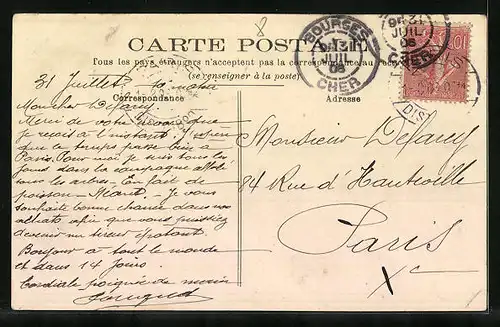 8
CARTE POSTALE
Tous les pays étrangers n'acceptent pas la correspondance au recto
(se renseigner à la poste)
Correspondance
Adresse
BOURGES
31
JUIL
06
CHER
31
JUIL
06
CHER
10
31 Juillet
Mon cher Defarcy
Merci de votre envoi que
je reçois à l'instant. J'espère
que le temps passe bien à
Paris. Pour moi je suis tous les
jours dans la campagne
tous les arbres. En fait de
poisson Néant. Je vous
souhaite bonne chance dans vos
achats afin que vous puissiez
devenir un tireur épatant.
Bonjour à tout le monde
et dans 14 Jours.
Cordiale poignée de main
Monsieur Defarcy
84 Rue d'Hauteville
Paris
Xe